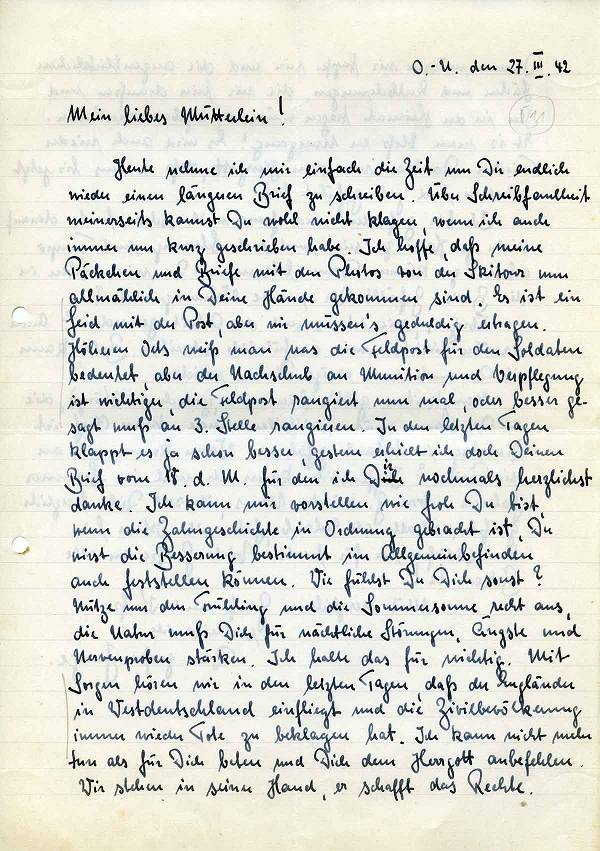 O.-U. den 27. III. 42
(11)
Mein liebes Mütterlein!
Heute nehme ich mir einfach die Zeit um Dir endlich
wieder einen längeren Brief zu schreiben. Über Schreibfaulheit
meinerseits kannst Du wohl nicht klagen, wenn ich auch
immer nur kurz geschrieben habe. Ich hoffe, daß meine
Päckchen und Briefe mit den Photos von der Skitour nun
allmählich in Deine Hände gekommen sind. Es ist ein
Leid mit der Post, aber wir müssen's geduldig ertragen.
Höheren Orts weiß man was die Feldpost für den Soldaten
bedeutet, aber der Nachschub an Munition und Verpflegung
ist wichtiger, die Feldpost rangiert nun mal, oder besser ge-
sagt muß an 3. Stelle rangieren. In den letzten Tagen
klappt es ja schon besser, gestern erhielt ich doch Deinen
Brief vom 18. d. M. für den ich Dir nochmals herzlichst
danke. Ich kann mir vorstellen wie froh Du bist,
wenn die Zahngeschichte in Ordnung gebracht ist, Du
wirst die Besserung bestimmt im Allgemeinbefinden
auch feststellen können. Wie fühlst Du Dich sonst?
Nütze nur den Frühling und die Sommersonne recht aus,
die Natur muß Dich für nächtliche Störungen, Ängste und
Nervenproben stärken. Ich halte das für wichtig. Mit
Sorgen hören wir in den letzten Tagen, daß der Engländer
in Westdeutschland einfliegt und die Zivilbevölkerung
immer wieder Tote zu beklagen hat. Ich kann nicht mehr
tun als für Dich beten und Dich dem Herrgott anbefehlen.
Wir stehen in seiner Hand, er schafft das Rechte.